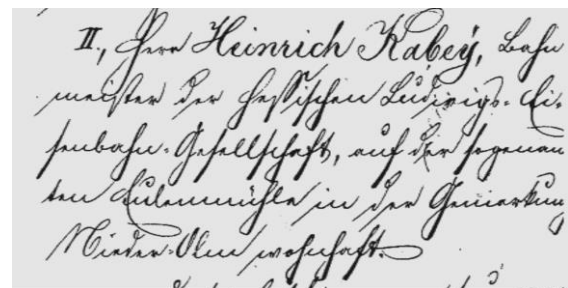 II., Herr Heinrich Kabey, Bahn
meister der Hessischen Ludwigs-Ei-
senbahn-Gesellschaft, auf der sogenan
ten Eulenmühle in der Gemarkung
Nieder-Olm wohnhaft.